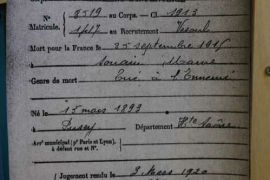 N° 8519 au Corps. — Cl 1913
Matricule. 1417 au Recrutement Vesoul
Mort pour la France le 25 septembre 1915
à Souain Marne
Genre de mort Tué à l'Ennemi
Né le 15 mars 1893
à Département Hte Saône
Arr¹ municipal (pr Paris et Lyon),
à défaut rue et N°.
Jugement rendu le 3 Mars 1920